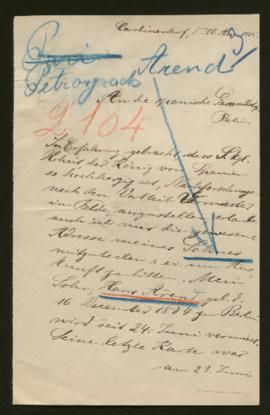 Carolinenhof, d. 10.
Paris
Petrograd Arend
An die spanische Gesandtschaft
Berlin.
2104
In Erfahrung gebracht dass S. kgl.
Hoheit der König von Spanien
so hochherzig ist, Nachforschungen
nach dem Verbleib
im Felde, anzustellen, erlaube
auch ich mir die genaue
Adresse meines Sohnes
mitzuteilen & er um Aus
kunft zu bitten. Mein
Sohn, Hans Arend, geb. d.
16 Dezember 1894 zu Berlin
wird seit 24. Juni vermisst.
Seine letzte Karte war
am 23 Juni